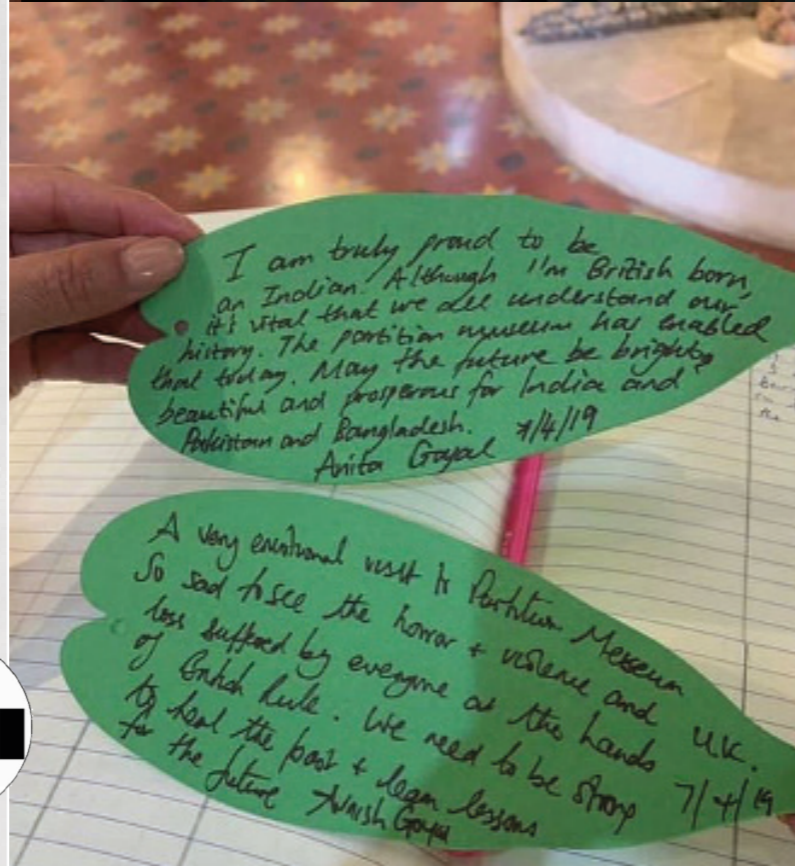 I am truly proud to be
an Indian. Although I'm British born,
it's vital that we all understand our
history. The partition museum has enabled
that today. May the future be bright,
beautiful and prosperous for India and
Pakistan and Bangladesh. 7/4/19
Anita Goyal
A very emotional visit to Partition Museum
So sad to see the horror + violence and U.K.
loss suffered by everyone at the hands
of British Rule. We need to be strong 7/4/19
to heal the past + learn lessons
for the future Avnish Goyal